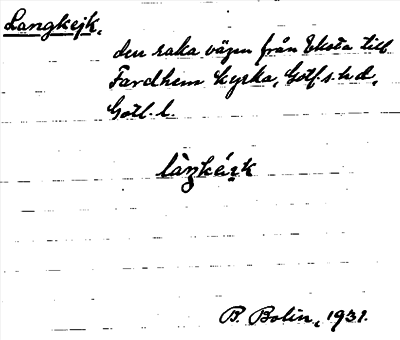 Langkejk.
den raka vägen från Ekota till
Fardhem kyrka, Gotl. s. h d,
Gotl. l.
B. Bolin, 1931.